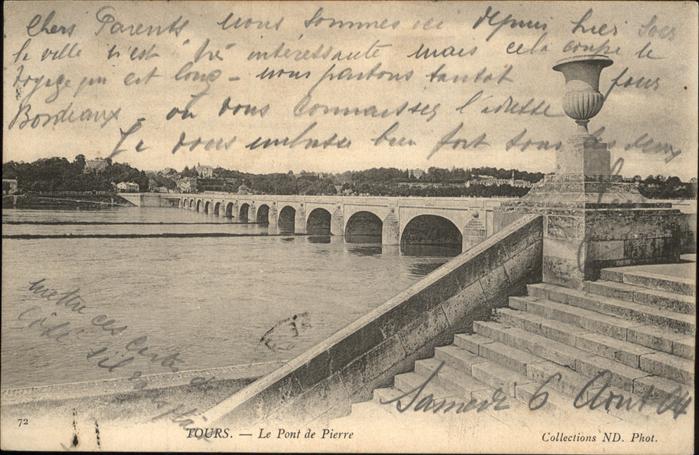 Chers Parents nous sommes ici depuis hier soir
la ville n'est très intéressante mais cela coupe le
voyage qui est long - nous partons tantôt pour
Bordeaux - où vous connaissez l'adresse
Je vous embrasse bien fort tous les deux
mettre ces cartes
de côté s'il
Samedi 6 Août 04
72
TOURS. — Le Pont de Pierre
Collections ND. Phot.